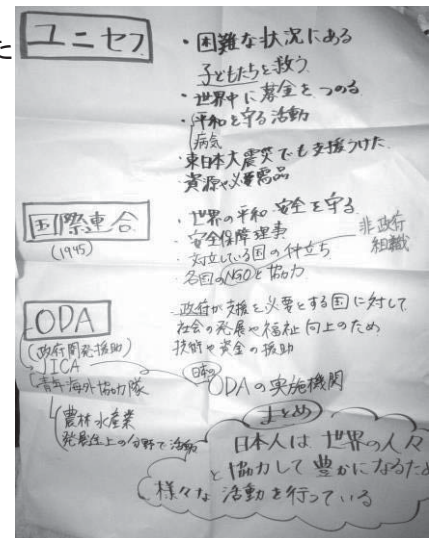 た
ユニセフ
・困難な状況にある
子どもたちを救う
・世界中に募金をつのる
・平和を守る活動
病気
・東日本大震災でも支援うけた
・資源や必要需品
国際連合
(1945)
・世界の平和 安全を守る
・安全保障理事
・対立している国の仲立ち
・各国のNGOと協力
非政府
組織
ODA
(政府開発援助)
JICA
青年海外協力隊
農林水産業
・政府が支援を必要とする国に対して
社会の発展や福祉向上のため
技術や資金の援助
日本の
ODAの実施機関
まとめ
日本人は世界の人々
と協力して豊かになるため
様々な活動を行っている